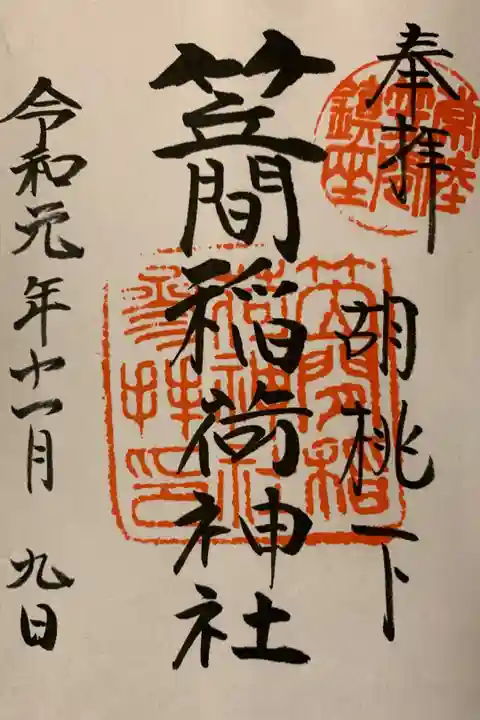 奉拝
胡桃下
笠間稲荷神社
令和元年十一月 九日
笠間稲
荷神社
参拝印